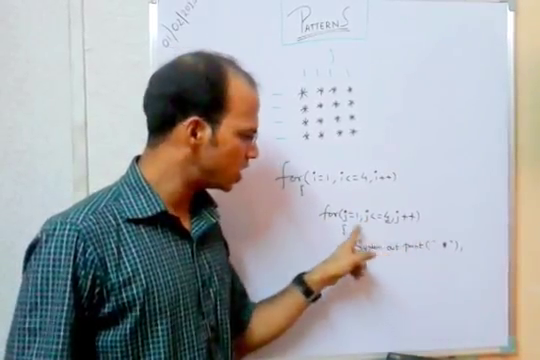 01/02/202
PATTERNS
j
* * * *
* * * *
* * * *
* * * *
for(i=1, i<=4, i++)
{
for(j=1, j<=4, j++)
{
System.out.print(" *");